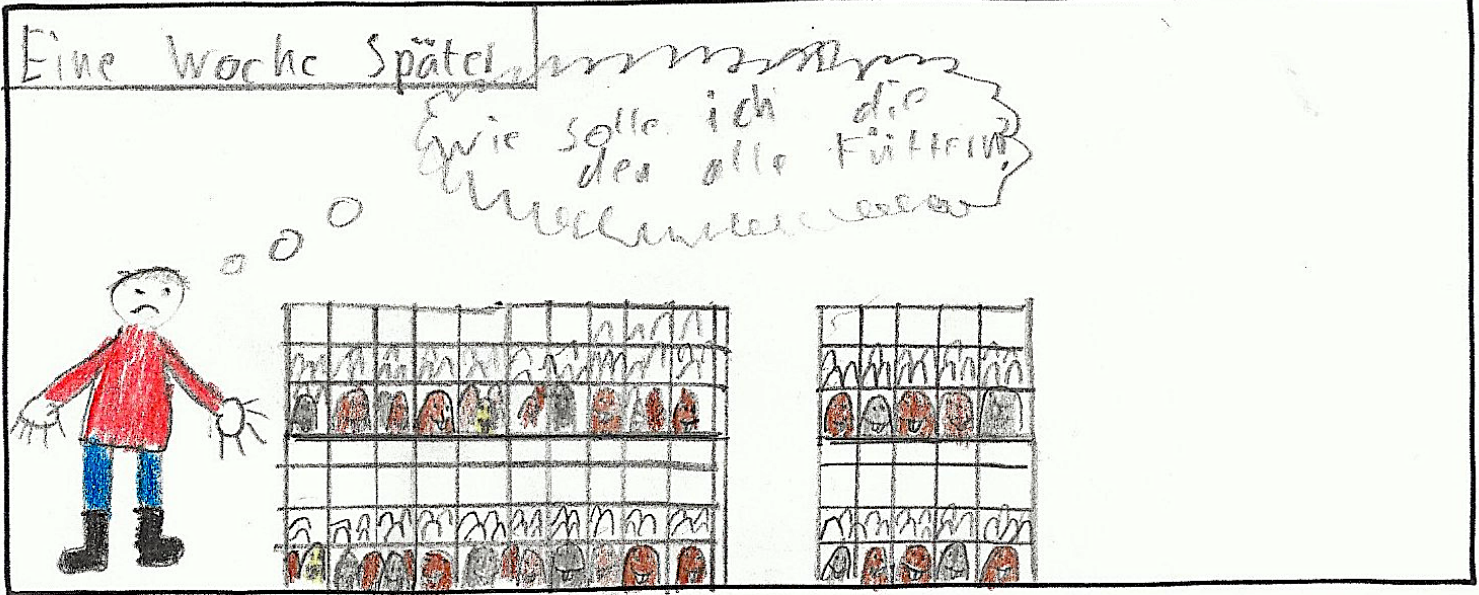 Eine Woche Später
wie solle ich die
den alle Füttern?